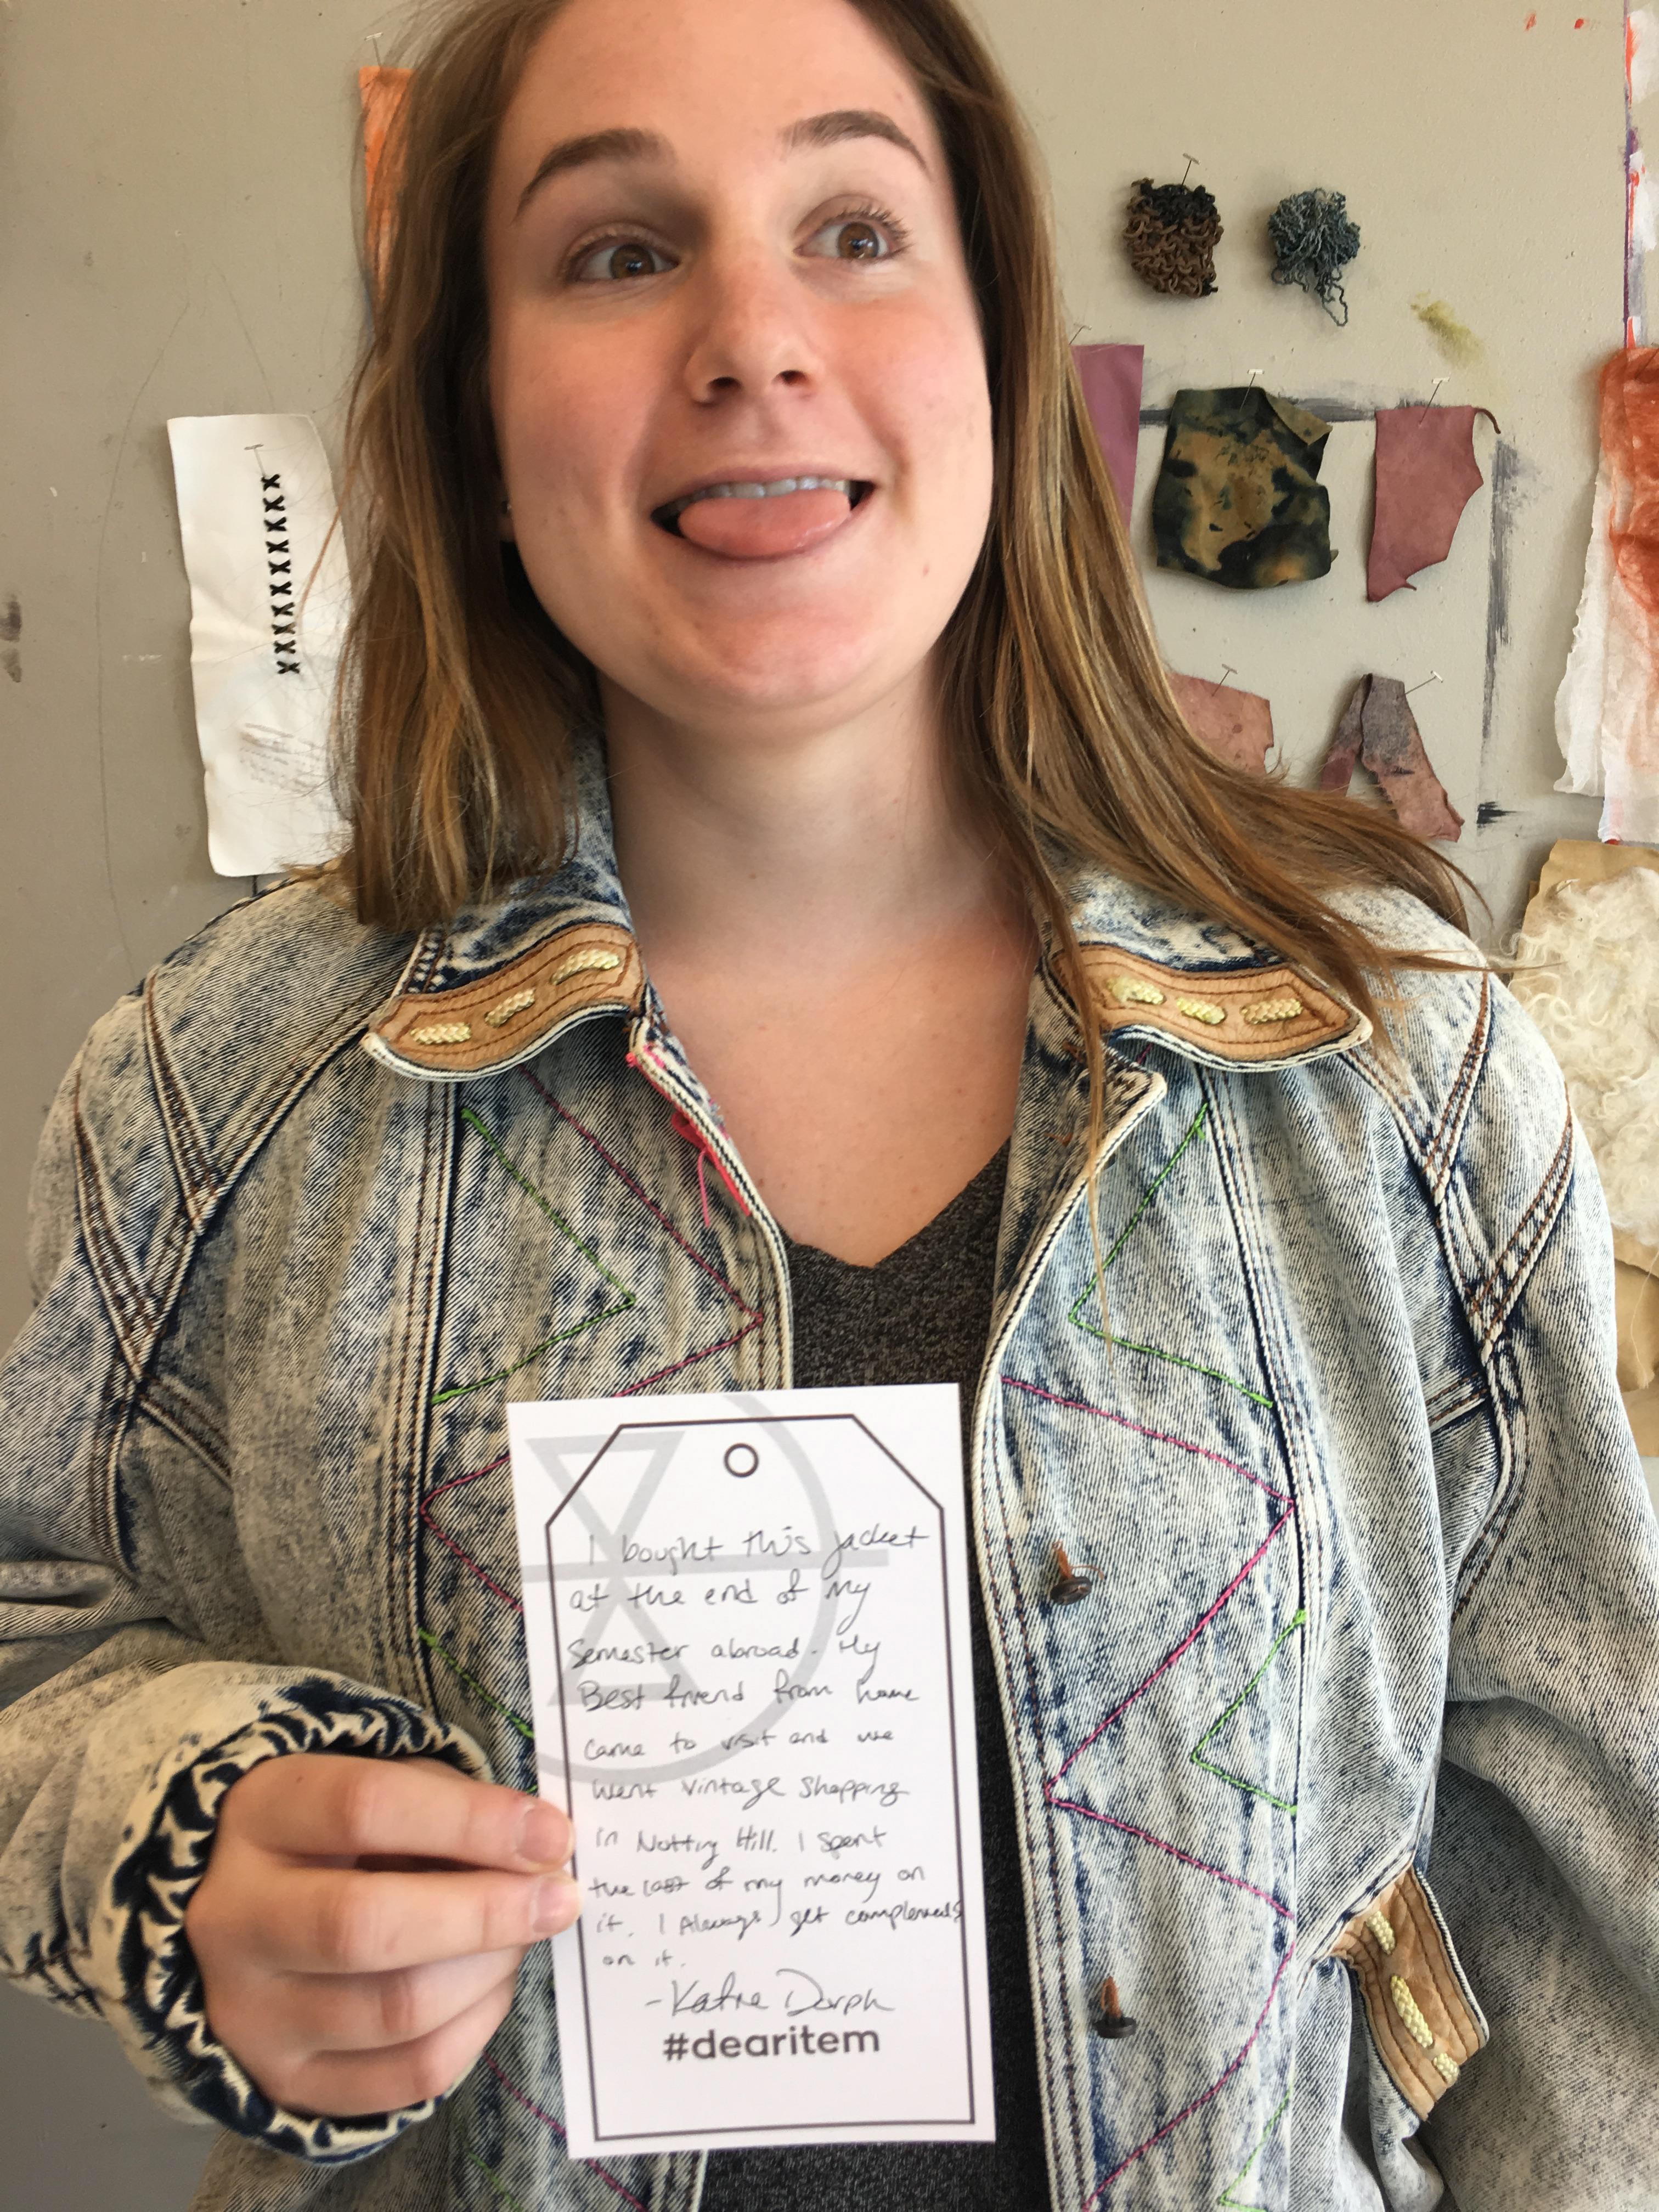 I bought this jacket
at the end of my
Semester abroad. My
Best friend from home
came to visit and we
went vintage shopping
in Notting Hill. I spent
the last of my money on
it. I Always get complements
on it.
-Katie Dorph
#dearitem